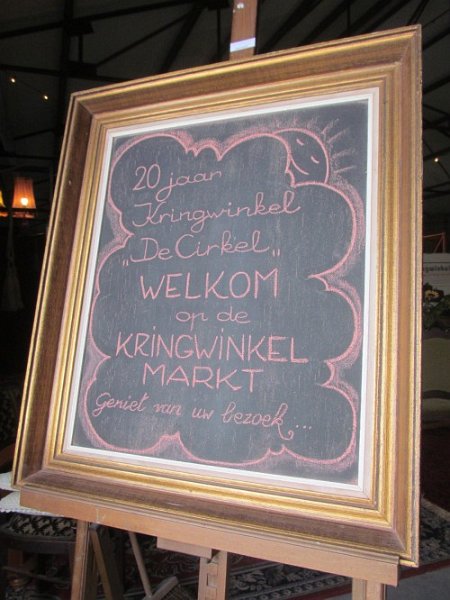 20 jaar
Kringwinkel
„De Cirkel„
WELKOM
op de
KRINGWINKEL
MARKT
Geniet van uw bezoek...